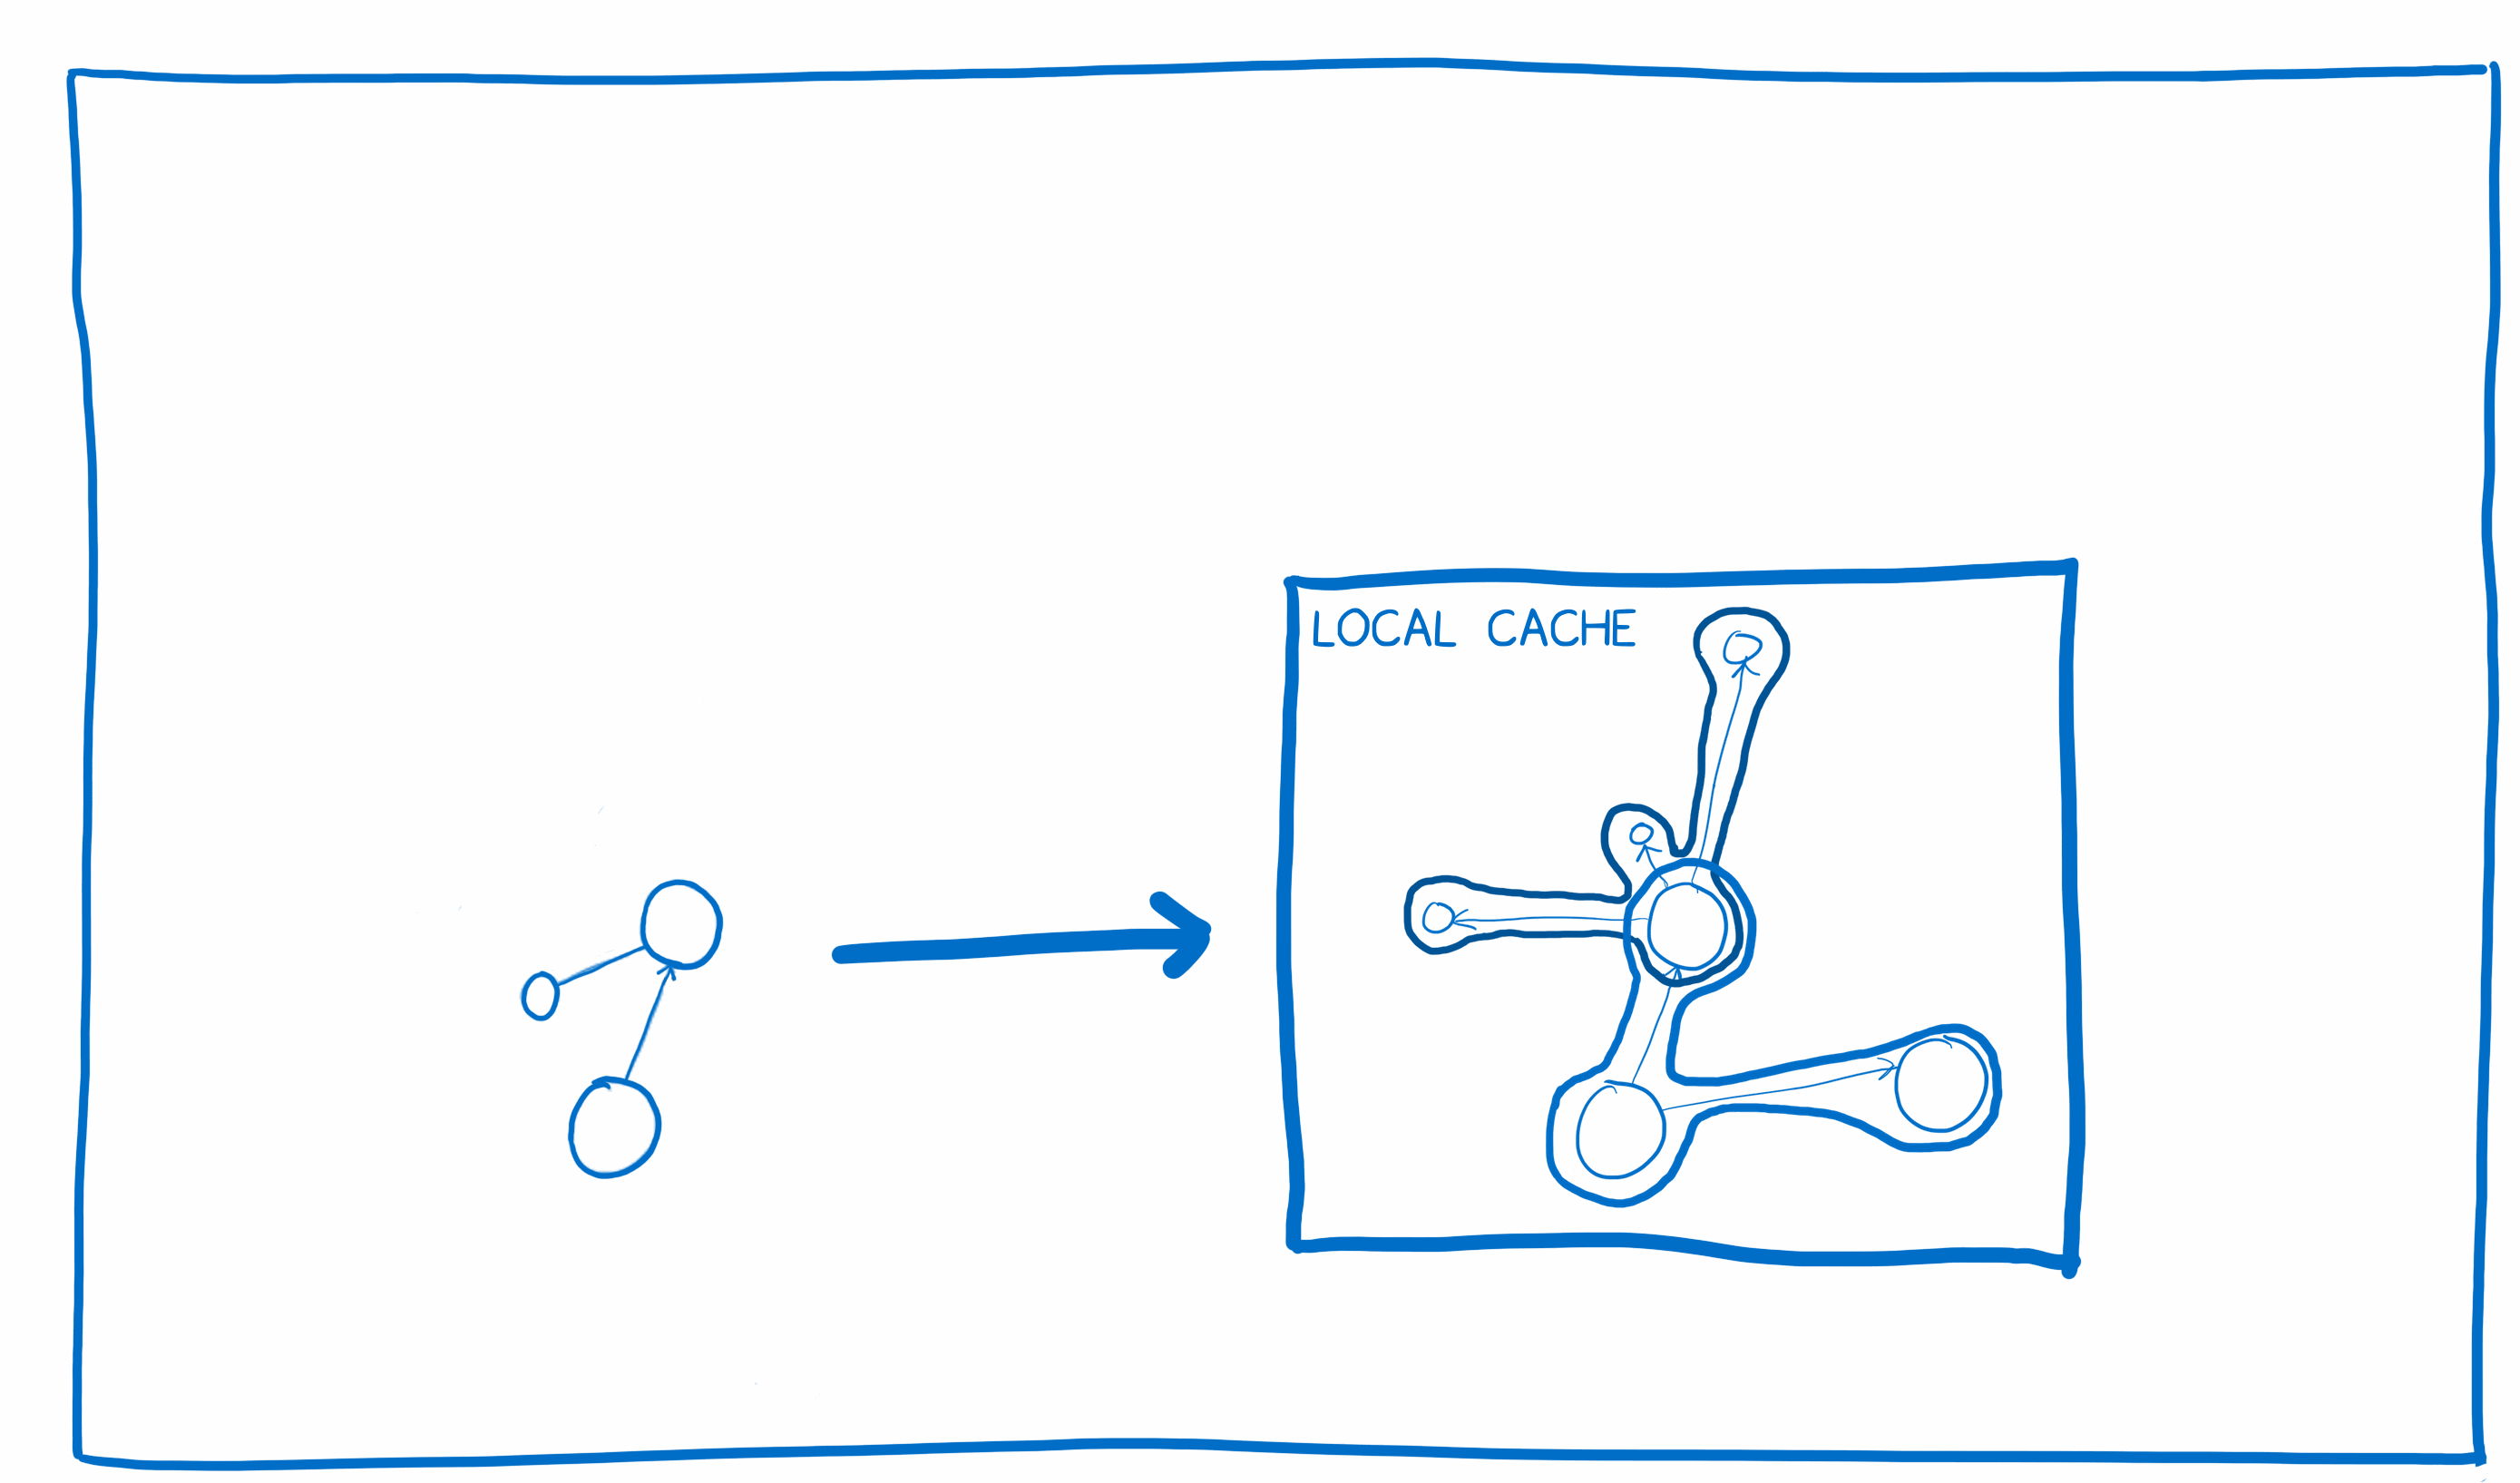 LOCAL CACHE